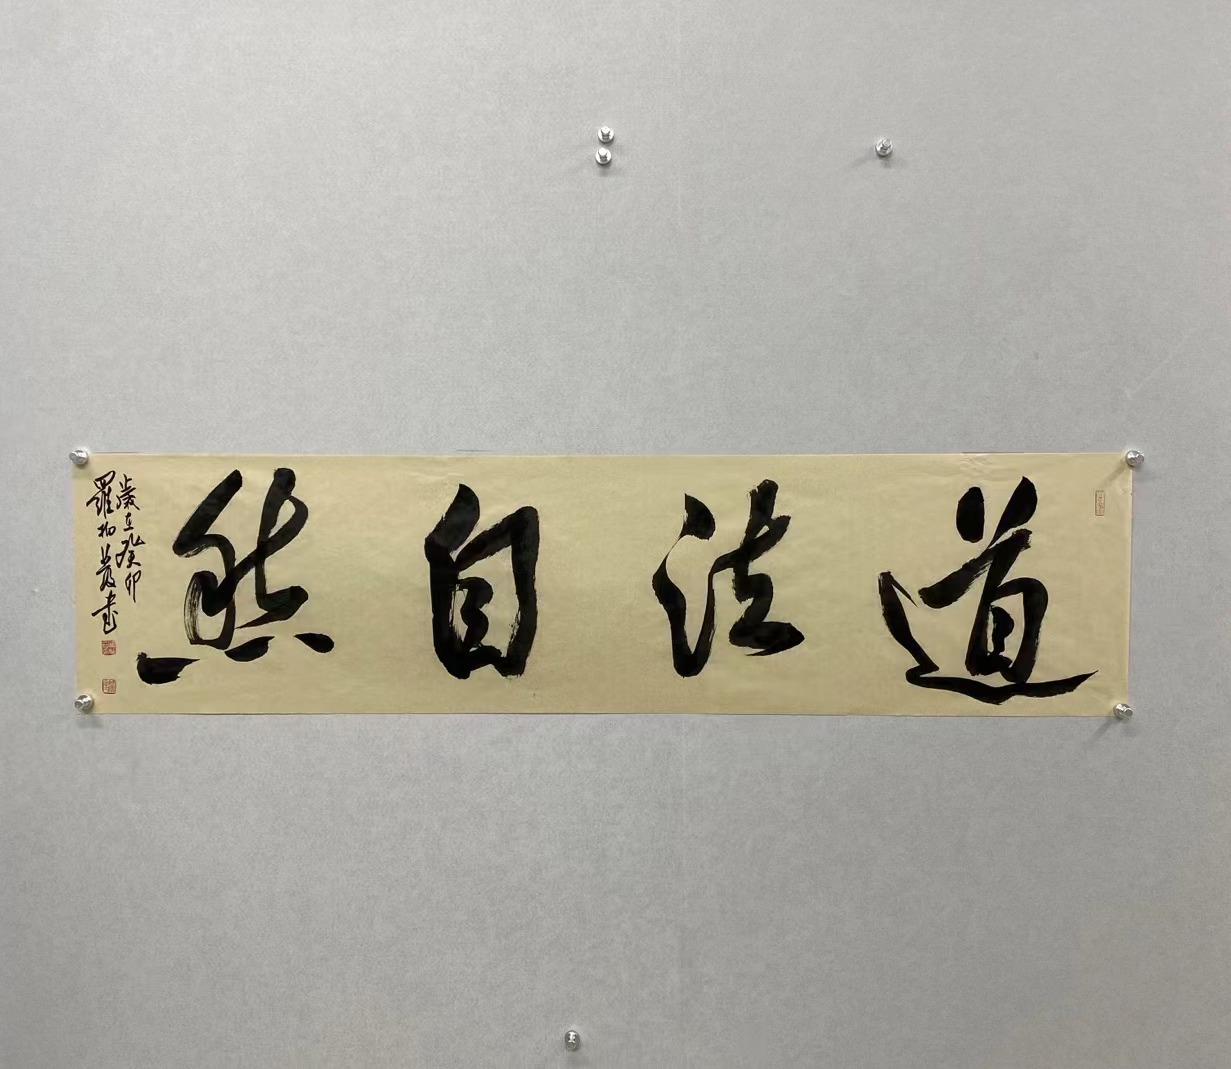 道法自然
歲在癸卯
羅柏茂書